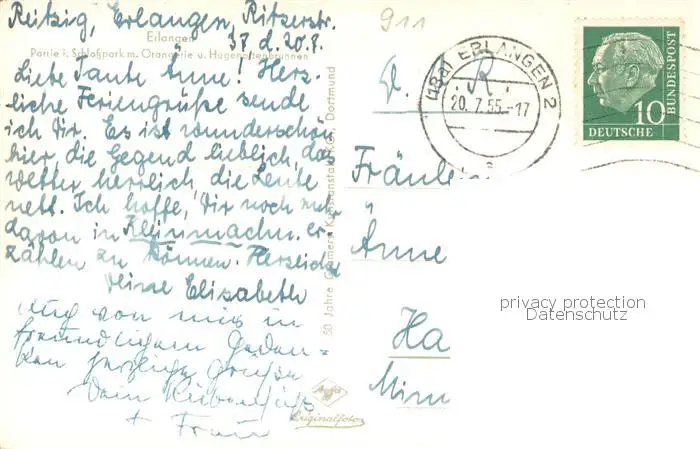 Reitzig, Erlangen, Ritzerstr.
37 d. 20.7.
Erlangen
Partie i. Schloßpark m. Orangerie u. Hugenottenbrunnen
Liebe Tante Änne! Herz-
liche Feriengrüße sende
ich Dir. Es ist wunderschön
hier, die Gegend lieblich, das
Wetter herrlich, die Leute
nett. Ich hoffe, Dir noch mehr
davon in Kleinmachn. er-
zählen zu können. Herzlichst
Deine Elisabeth
Auch von mir in
freundlichem Geden-
ken herzliche Grüße
Dein
+ Frau
50 Jahre Cramers Kunstanstalt KG., Dortmund
Agfa
Originalfoto
911
(13a) ERLANGEN 2
20.7.55.-17
a
DEUTSCHE
BUNDESPOST
10
Fräule
Änne
Ha
privacy protection
Datenschutz